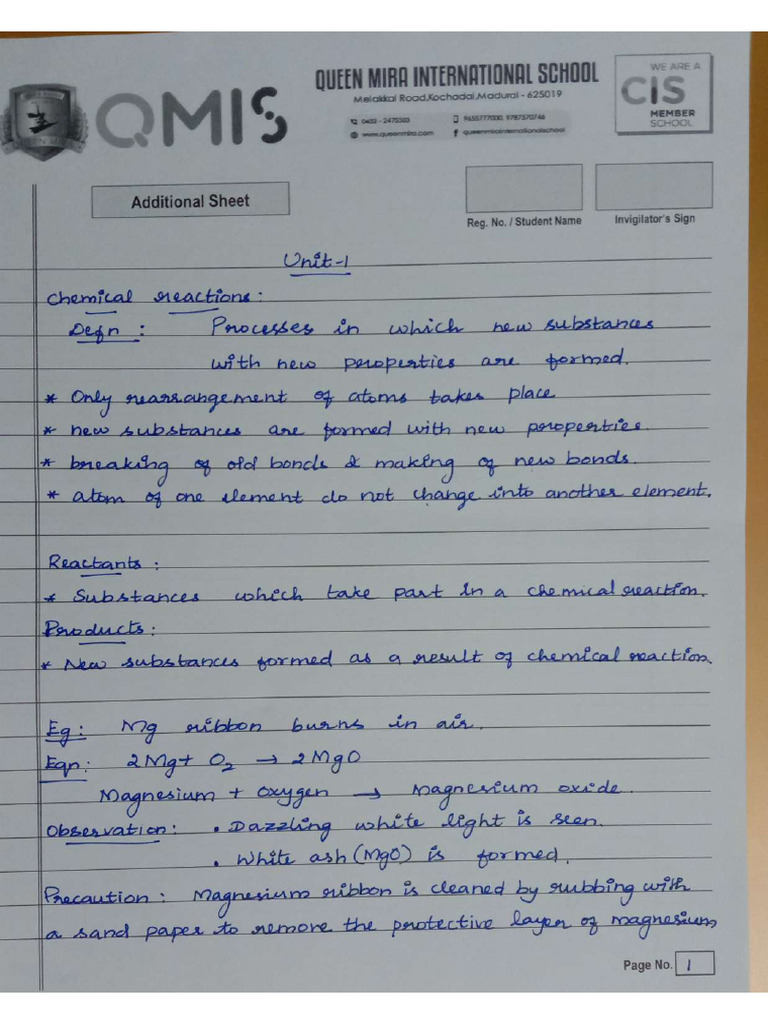 QMIS
QUEEN MIRA INTERNATIONAL SCHOOL
Melakkal Road,Kochadai,Madurai - 625019
0452 - 2475303 9655777000, 9787570746
www.queenmira.com queenmirainternationalschool
WE ARE A
CIS
MEMBER
SCHOOL
Additional Sheet
Reg. No. / Student Name
Invigilator's Sign
Unit-1
Chemical reactions:
Defn : Processes in which new substances
with new properties are formed.
* Only rearrangement of atoms takes place
* new substances are formed with new properties.
* breaking of old bonds & making of new bonds.
* atom of one element do not change into another element.
Reactants :
* Substances which take part in a chemical reaction.
Products :
* New substances formed as a result of chemical reaction.
Eg : Mg ribbon burns in air.
Eqn : 2Mg+ O₂ → 2MgO
Magnesium + Oxygen → Magnesium oxide.
Observation : • Dazzling white light is seen.
• White ash (MgO) is formed.
Precaution : Magnesium ribbon is cleaned by rubbing with
a sand paper to remove the protective layer of magnesium
Page No. 1